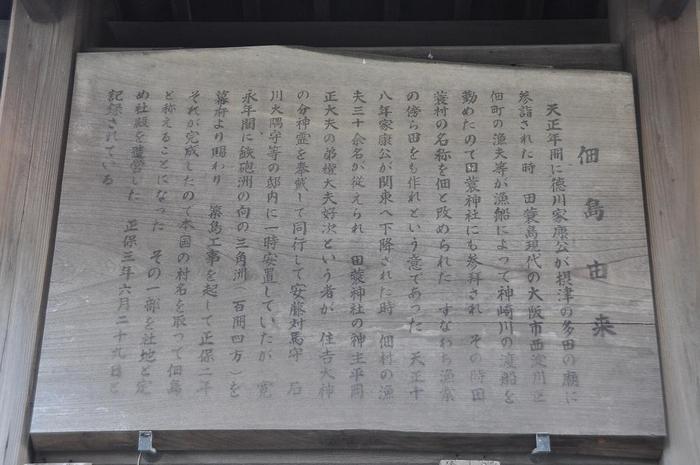 佃島由来
天正年間に徳川家康公が摂津の多田の廟に
参詣された時 田蓑島現代の大阪市西淀川区
佃町の漁夫等が漁船によって神崎川の渡船を
勤めたので田蓑神社にも参拝され その時田
蓑村の名称を佃と改められた すなわち漁業
の傍ら田をも作れという意であった 天正十
八年家康公が関東へ下降された時 佃村の漁
夫三十余名が従えられ 田蓑神社の神主平岡
正大夫の弟権大夫好次という者が 住吉大神
の分神霊を奉戴して同行して安藤対馬守 石
川大隅守等の邸内に一時安置していたが 寛
永年間に鉄砲洲の向の三角洲(百間四方)を
幕府より賜わり 築島工事を起して正保二年
それが完成したので本国の村名を取って佃島
と称えることになった その一部を社地と定
め社殿を造営した 正保三年六月二十九日と
記録されている